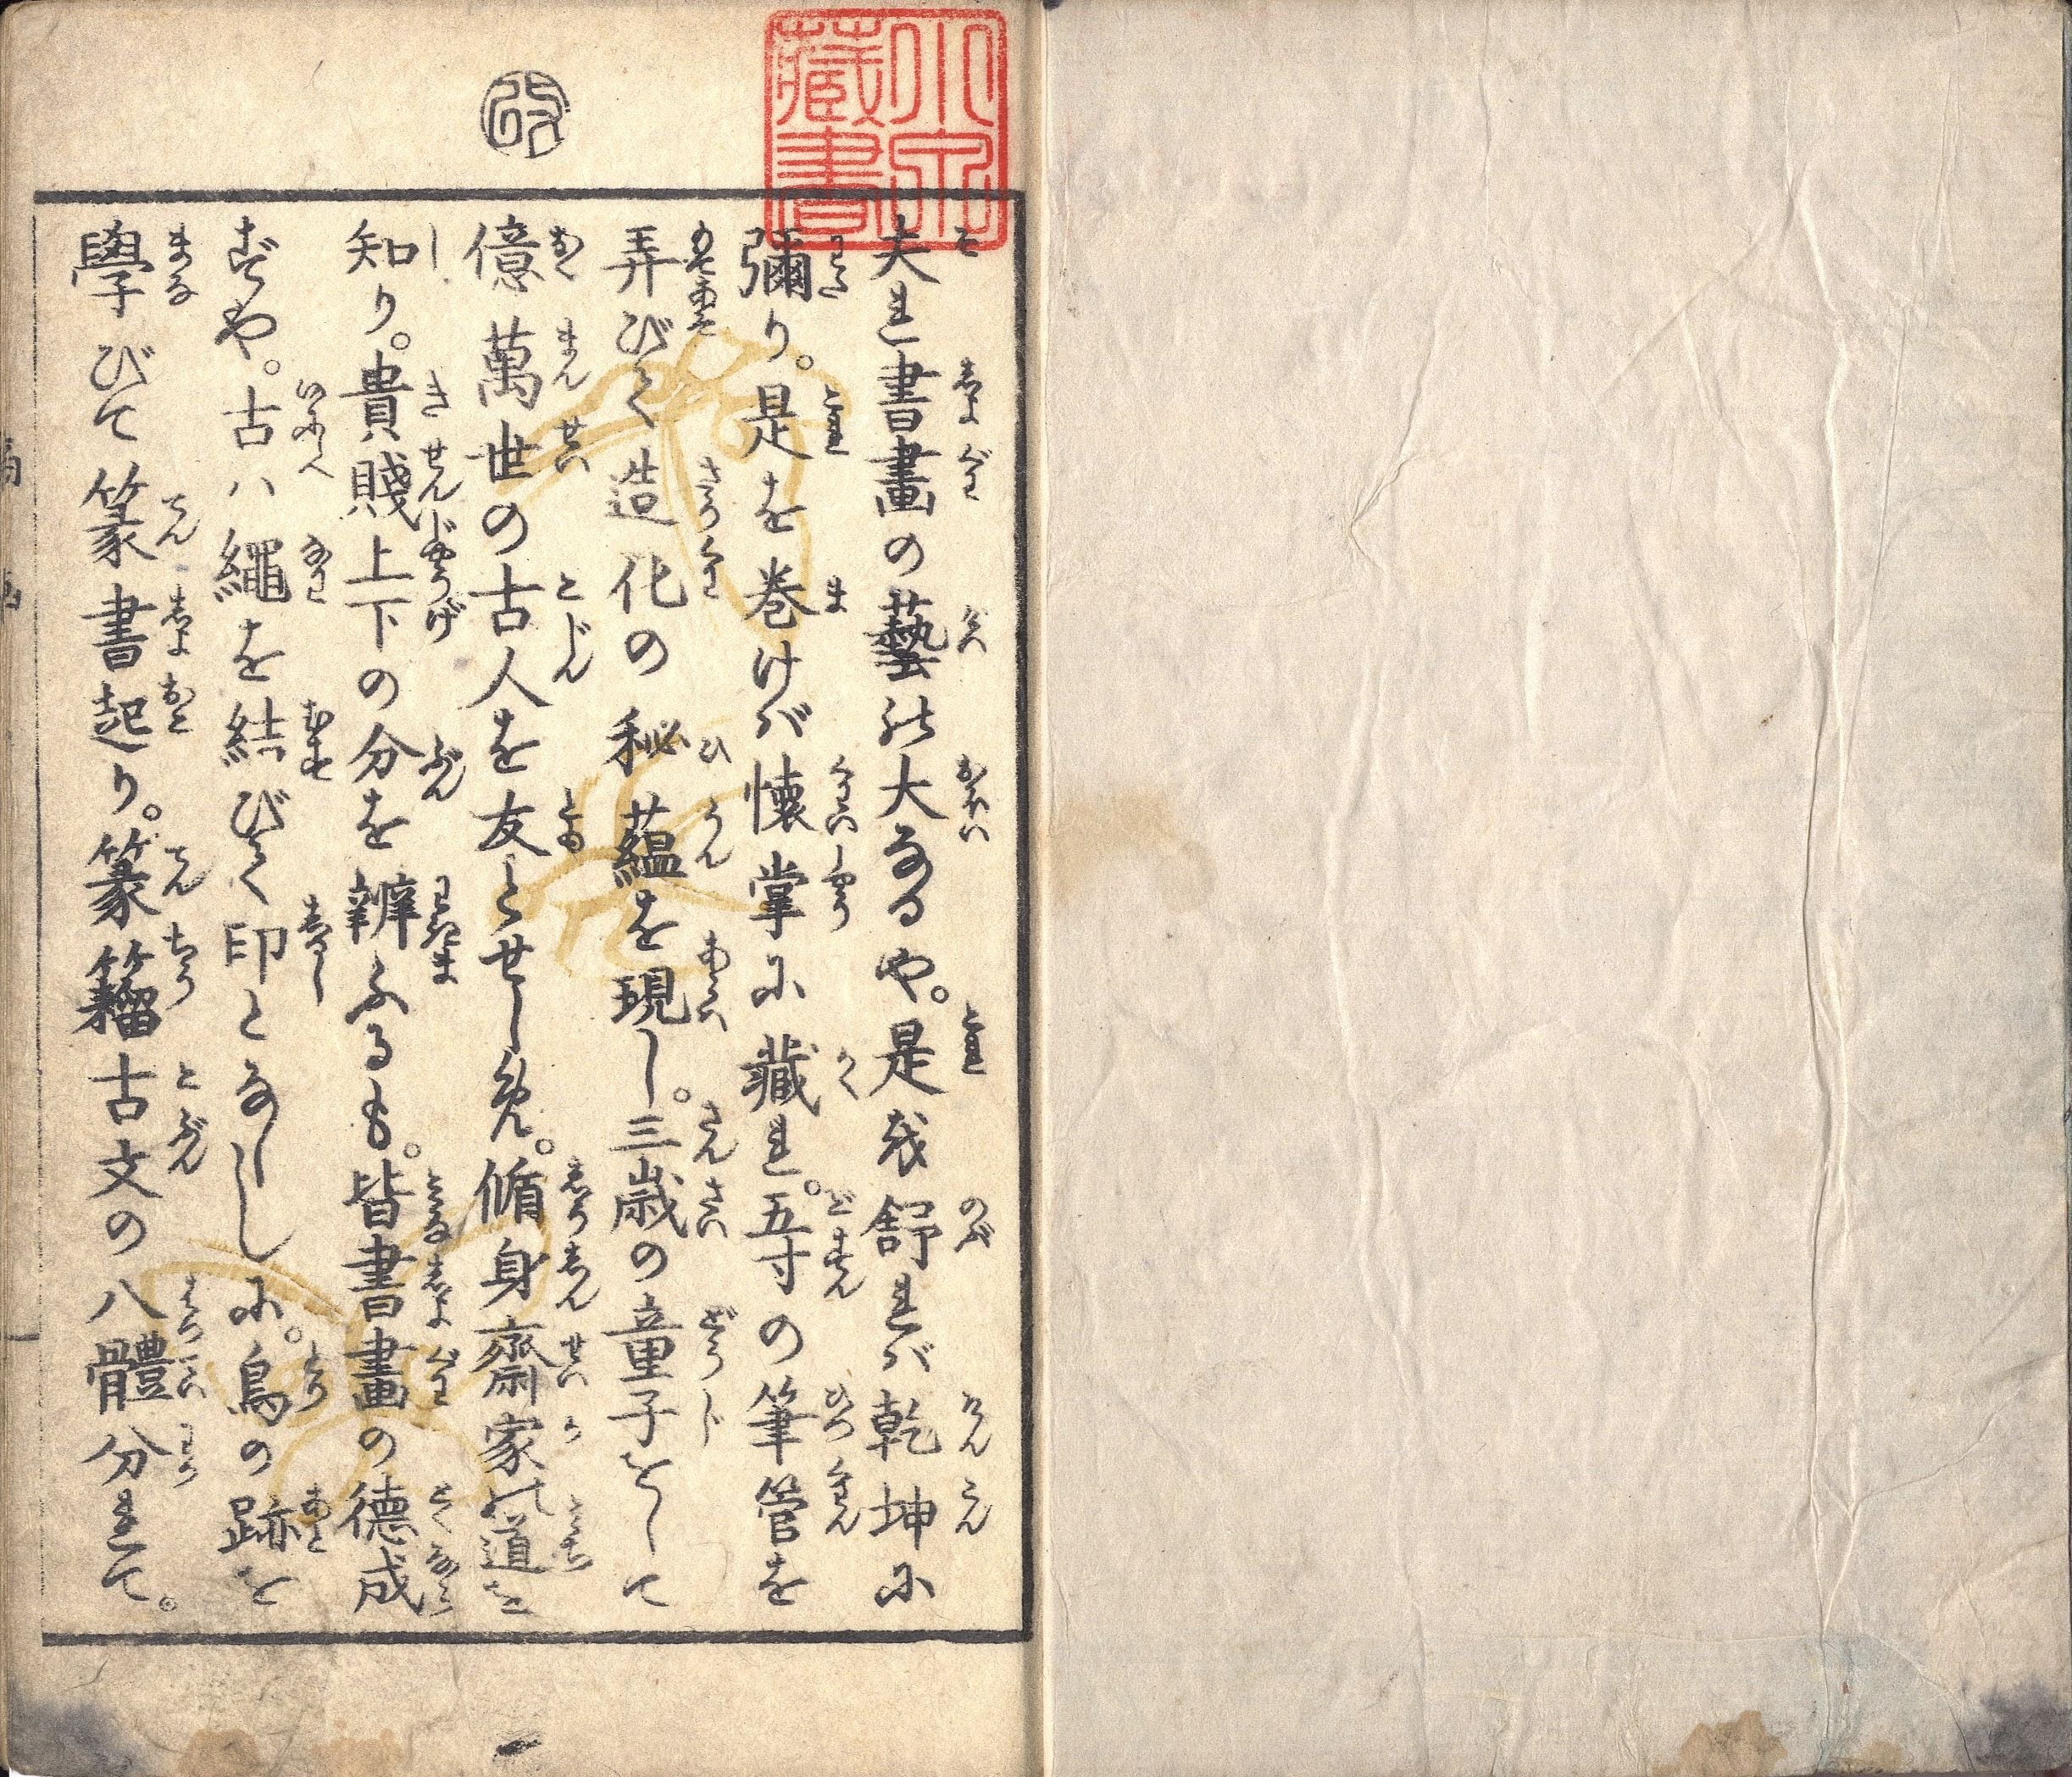 小泉藏書
改
夫れ書畫の藝は大なるや。是を舒れば乾坤に
彌り。是を巻けば懐掌に藏れ。五寸の筆管を
弄びて造化の秘蘊を現し。三歳の童子をして
億萬世の古人を友とせしめ。脩身齋家の道を
知り。貴賤上下の分を辨ふるも。皆書畫の德成
ずや。古ハ繩を結びて印となししに。鳥の跡を
學びて篆書起り。篆籀古文の八體分れて。